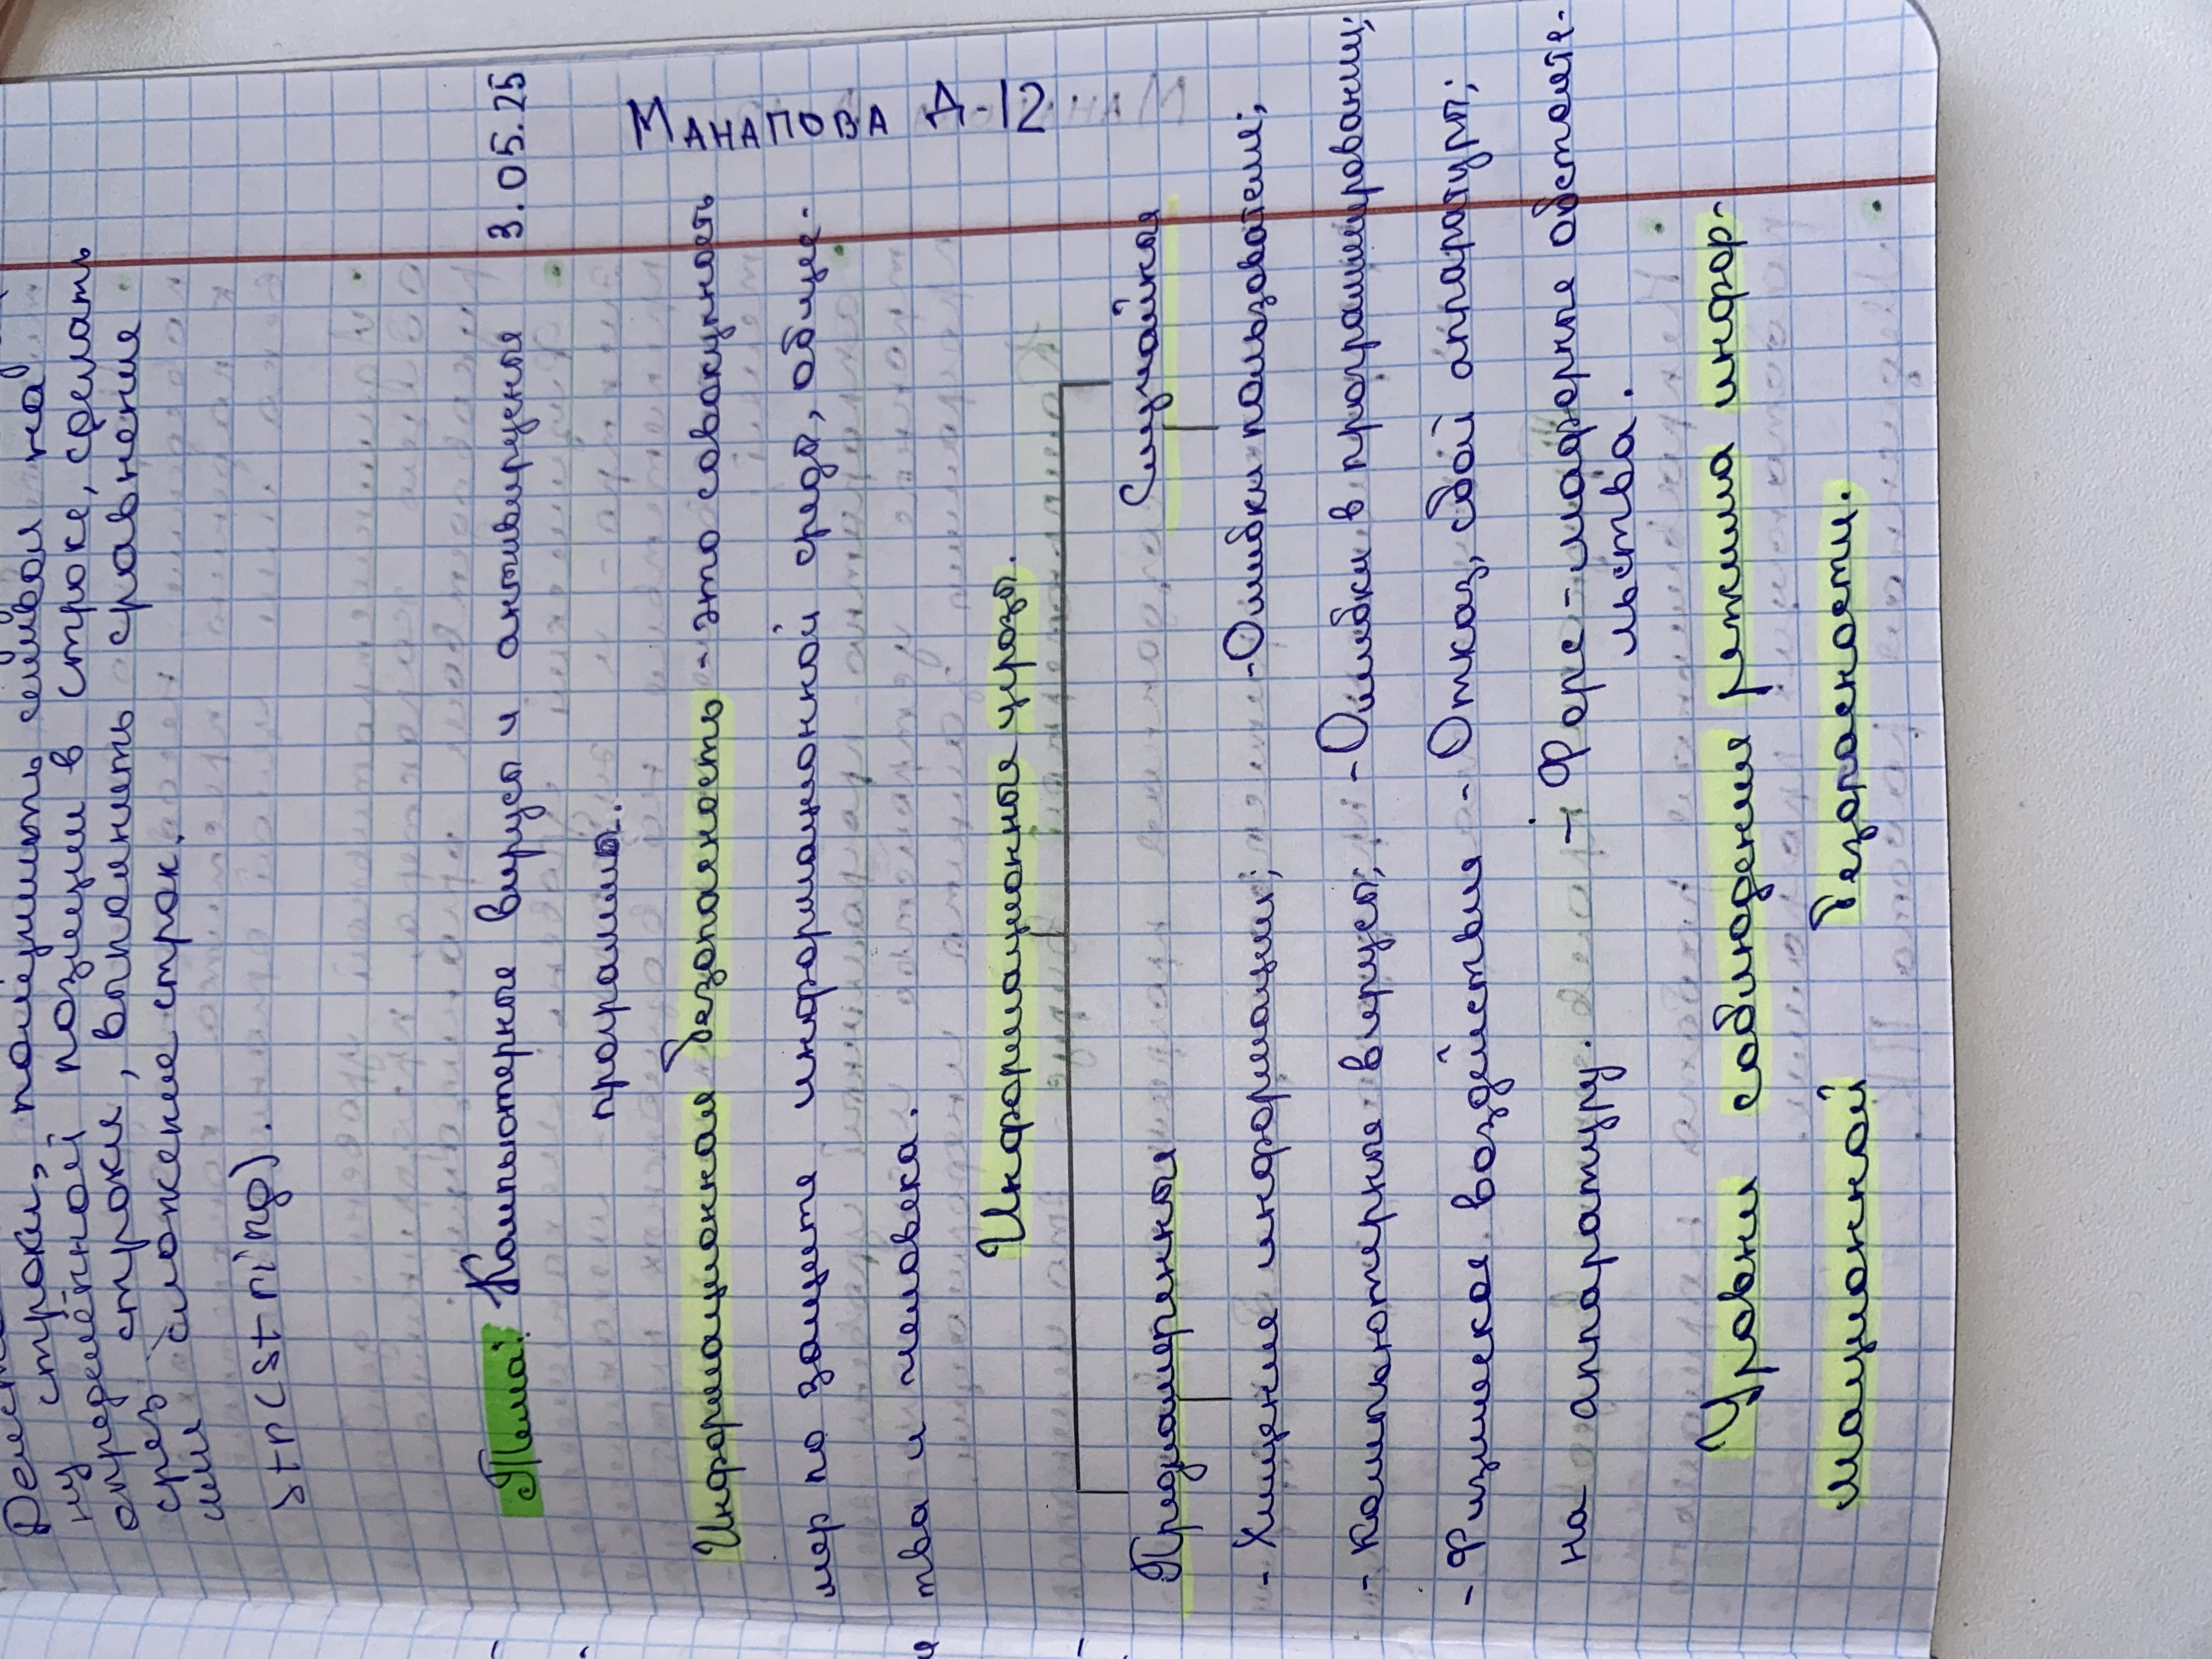 ну строки, получить символ на
определённой позиции в строке, сделать
срез строки, выполнить сравнение
или сложение строк.
str(string).
Тема: Компьютерные вирусы и антивирусные 3.05.25
программы.
Манапова Д-12
Информационная безопасность - это совокупность
мер по защите информационной среды, общес-
тва и человека.
Информационные угрозы.
Преднамеренные Случайные
- Хищение информации; - Ошибки пользователя;
- компьютерные вирусы; - Ошибки в программировании;
- Физическое воздействия - Отказ, сбой аппаратуры;
на аппаратуру. - Форс-мажорные обстояте-
льства.
Уровни соблюдения режима инфор-
мационной безопасности.